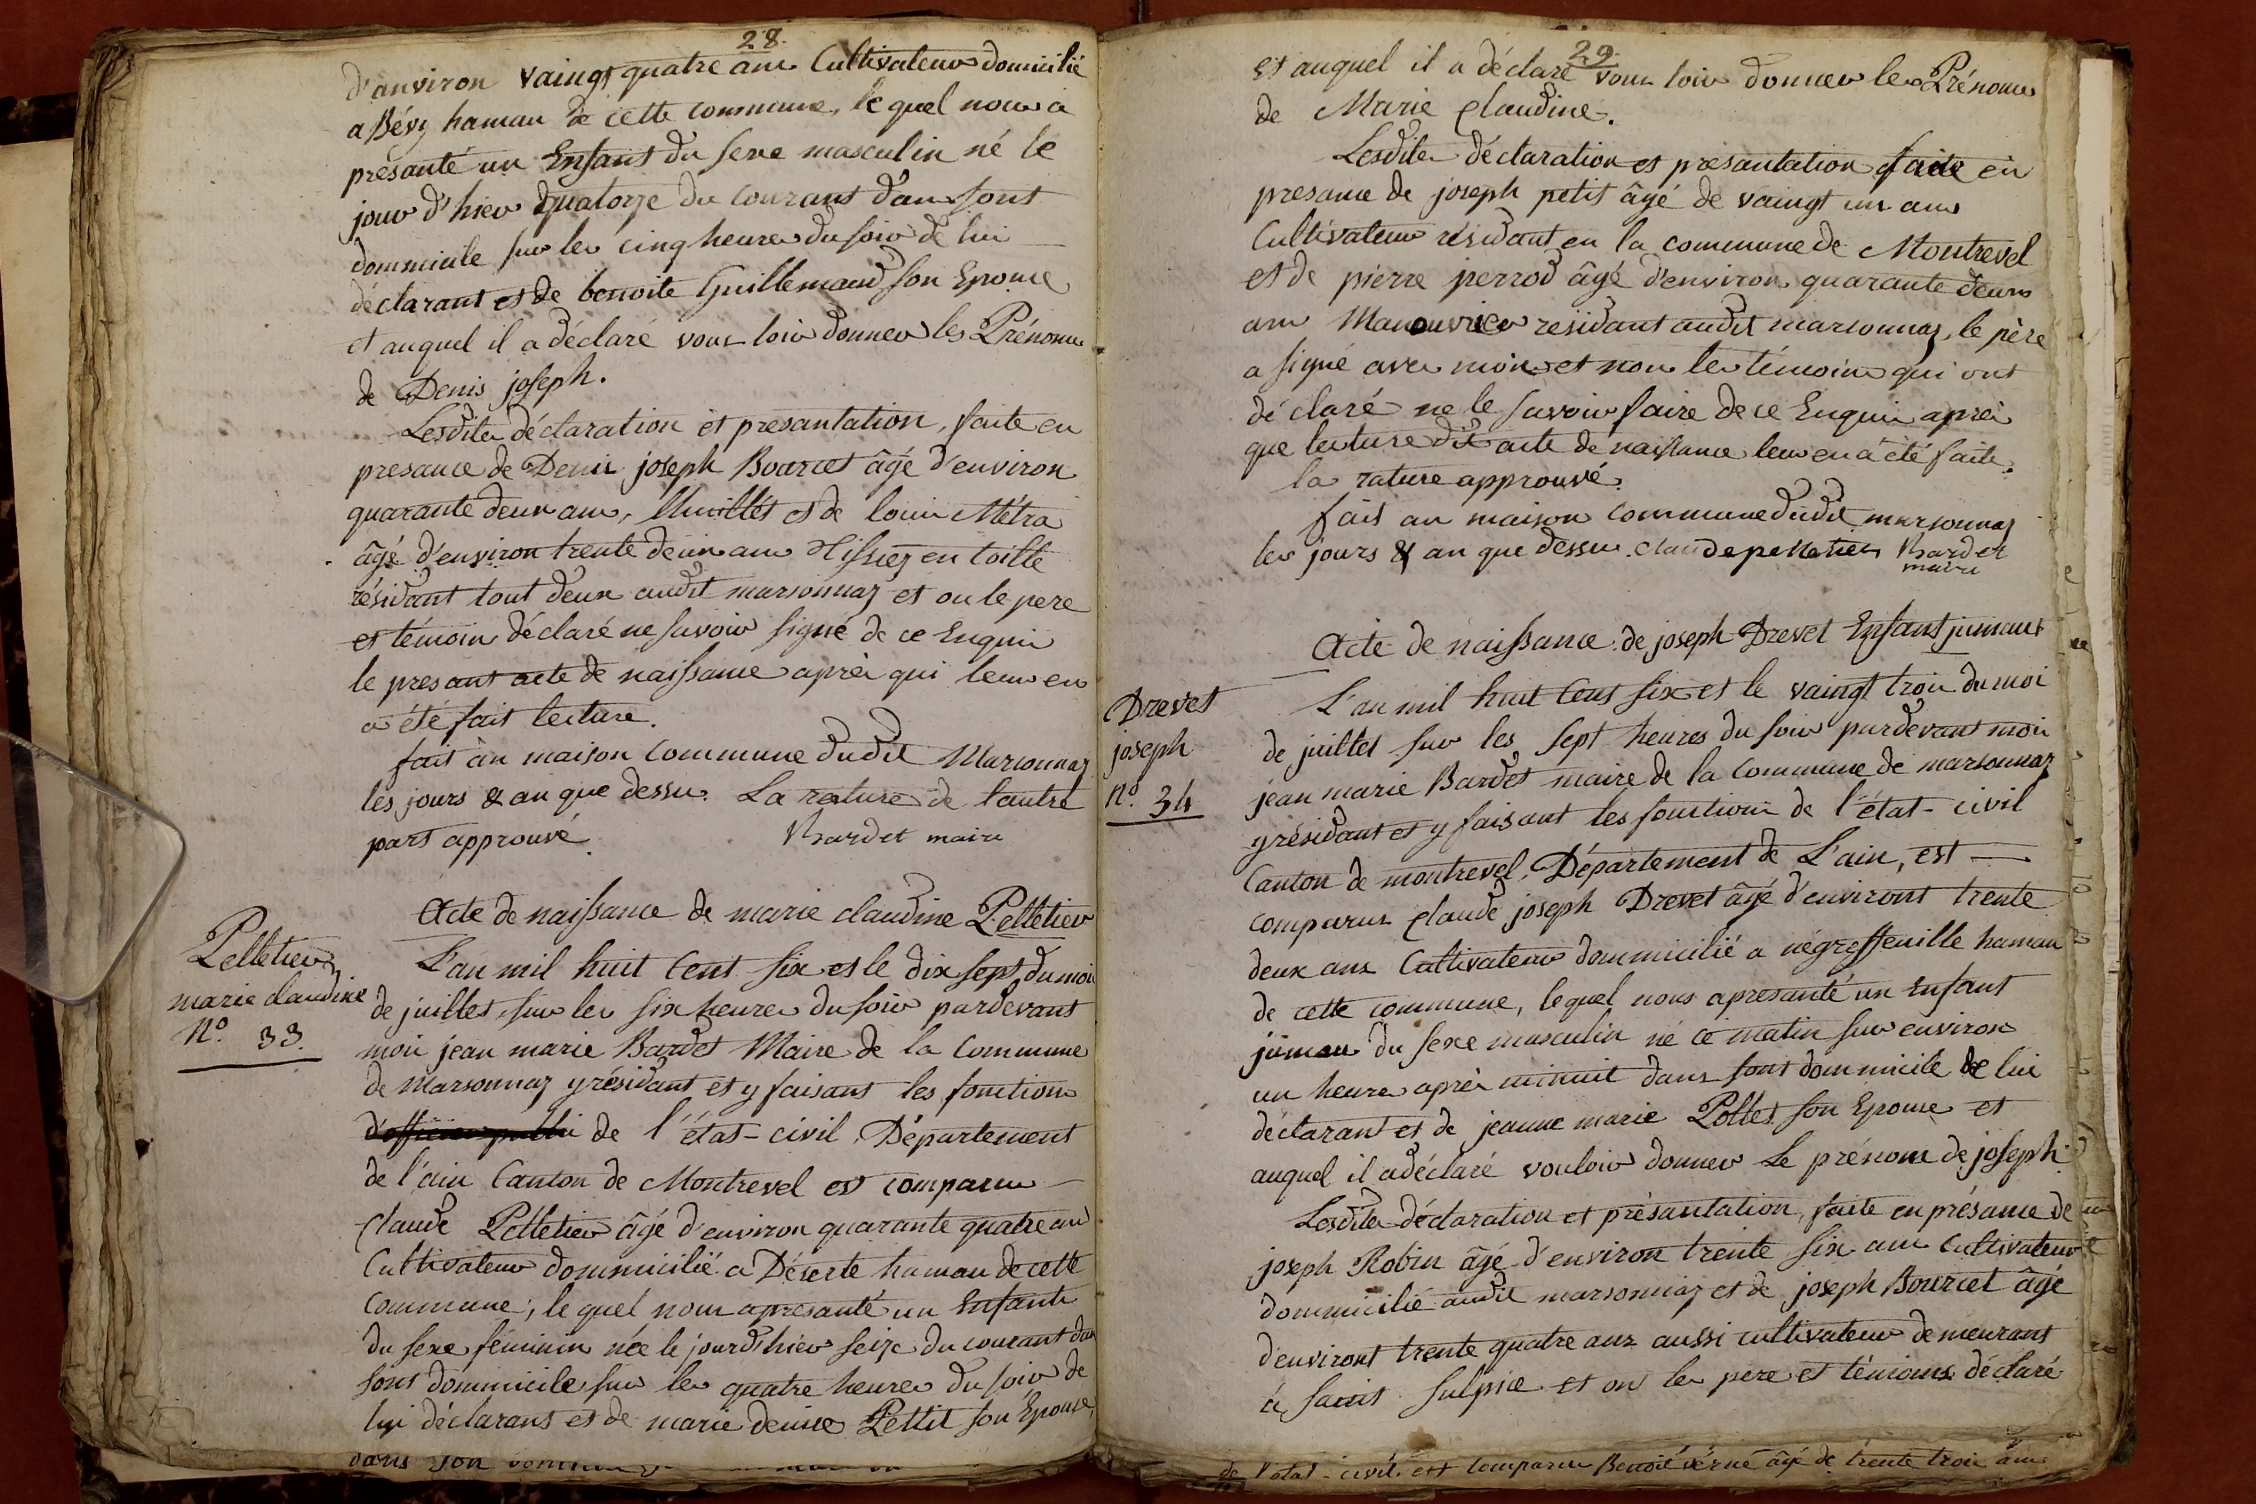 28.
d'anviron vaingt quatre ans Cultivateur domicilié
a Bévy haman de cette commune, le quel nous a
présanté un Enfant du sexe masculin né le
jour d'hier quatorze du courant dan sont
dommicile sur les cinq heures du soir de lui
déclarant et de benoite Guillemaud son Epouse
et auquel il a déclaré vous loir donner les Prénoms
de Denis joseph.
Lesdites déclaration et presantation, faite en
presance de Denis joseph Bourcet âgé d'environ
quarante deux ans, et de louis Métra
âgé d'environ trente deux ans Tissiez en toille
résidant tout deux audit marsonnaz et ou le pere
et témoin déclaré ne savoir signé de ce Enquis
le presant acte de naissance après qui leur en
a été fait lecture.
fait an maison commune dudit Marsonnaz
les jours & an que dessus. La rature de lautre
part approuvé. Bardet maire
Acte de naissance de marie claudine Pelletier
Pelletier
marie claudine
N.o 33.
L'an mil huit Cent six et le dix sept du mois
de juillet, sur les six heures du soir pardevant
moi jean marie Bardet Maire de la Commune
de Marsonnaz y résidant et y faisant les fonctions
d'officier public de l'état-civil, Département
de l'ain Canton de Montrevel est comparue
Claude Pelletier âgé d'environ quarante quatre ans
Cultivateur dommicilié a Déserte haman de cette
commune, le quel nous apresanté un Enfante
du sexe féminin née le jour d'hier seize du courant dan
sont dommicile sur les quatre heures du soir de
lui déclarant et de marie denise Pettit son Epouse,
dans son
29.
et auquel il a déclaré vous loir donner les Prénoms
de Marie Claudine.
Lesdites déclaration et présantation faite en
presance de joseph petit âgé de vaingt un ans
Cultivateur résidant en la commune de Montrevel
et de pierre perrod âgé d'environ quarante deux
ans Manouvrier residant audit marsonnaz, le père
a signé avec moi et non les témoins qui ont
déclaré ne le savoir faire de ce Enquis après
que lecture dit acte de naissance leur en a été faite.
la rature approuvé.
fait an maison commune dudit marsonnaz
les jours & an que dessus. claude pelletier Bardet
maire
Acte de naissance de joseph Drevet Enfant jumaux
Drevet
joseph
N.o 34
L'an mil huit Cent six et le vaingt trois du moi
de juillet sur les sept heures du soir pardevant moi
jean marie Bardet maire de la commune de marsonnaz
y résidant et y faisant les fonctions de l'état-civil
Canton de montrevel, Département de L'ain, est
comparus Claude joseph Drevet âgé d'environt trente
deux ans Cultivateur dommicilié a négreffeuille haman
de cette commune, lequel nous apresanté un Enfant
jumau du sexe masculin né ce matin sur environ
un heure après minuit dans sont dommicile de lui
déclarant et de jeanne marie Pollet son Epouse et
auquel il adéclaré vouloir donner le prénom de joseph.
Lesdites déclaration et présantation, faite en présance de
joseph Robin âgé d'environ trente six ans cultivateur
dommicilié audit marsonnaz et de joseph Bourcet âgé
d'environt trente quatre ans aussi cultivateur demeurant
à saint Sulpice et on les pere et témoins déclaré
de l'etat-civil est comparu Benoit verne âgé de trente trois ans